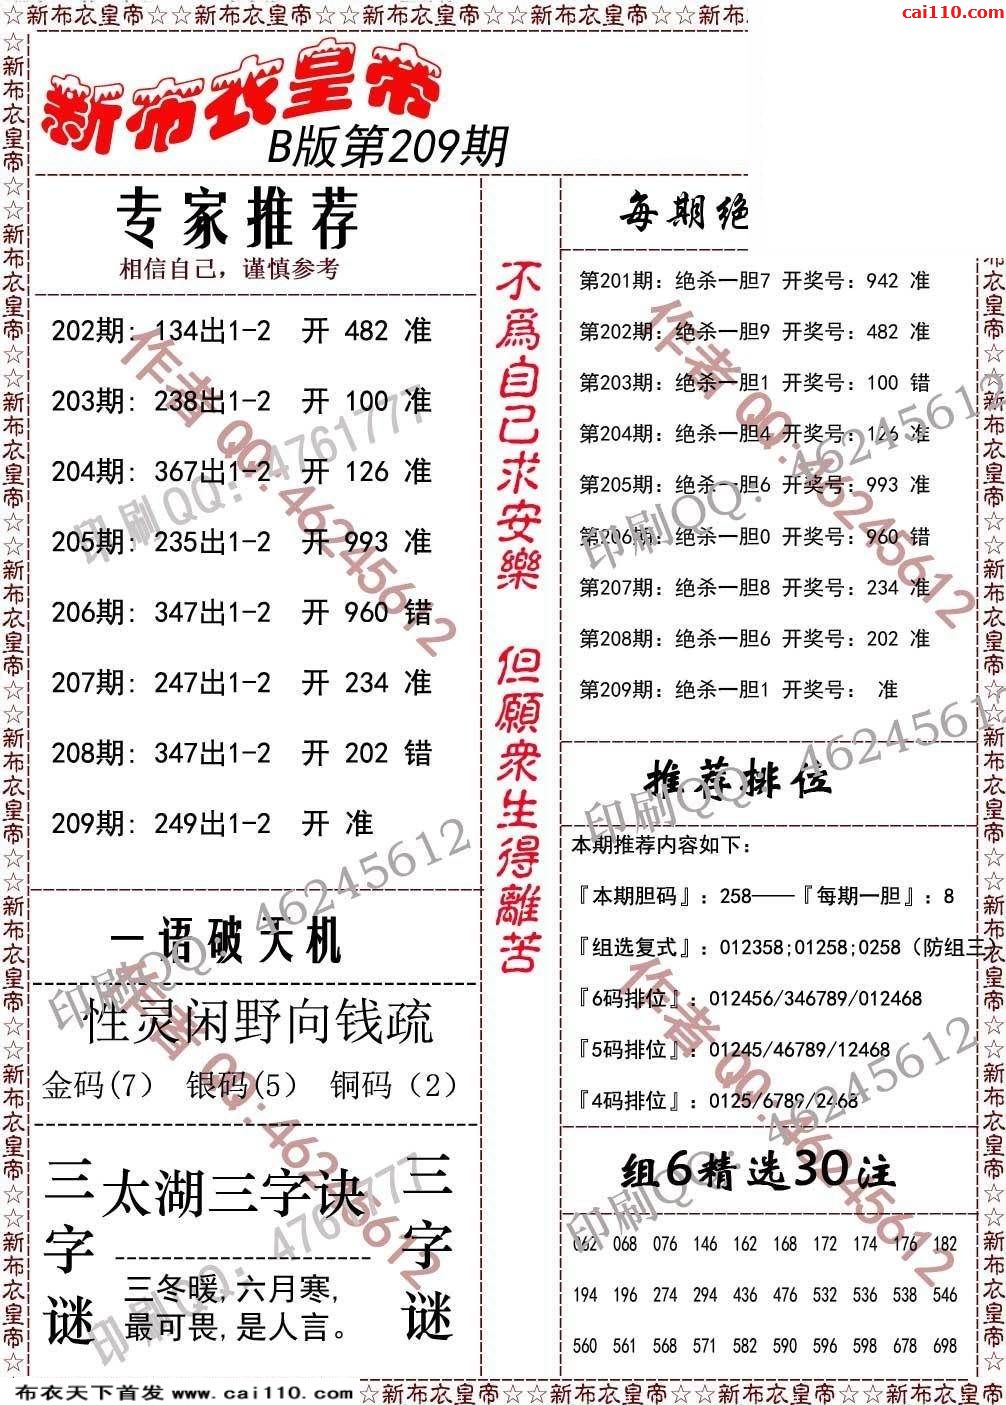 ☆新布衣皇帝☆☆新布衣皇帝☆☆新布衣皇帝☆☆新布衣皇帝☆☆新布
cai110.com
新布衣皇帝
B版第209期
专家推荐
相信自己，谨慎参考
202期: 134出1-2 开 482 准
203期: 238出1-2 开 100 准
204期: 367出1-2 开 126 准
205期: 235出1-2 开 993 准
206期: 347出1-2 开 960 错
207期: 247出1-2 开 234 准
208期: 347出1-2 开 202 错
209期: 249出1-2 开 准
一语破天机
性灵闲野向钱疏
金码(7) 银码(5) 铜码（2）
三字谜
太湖三字诀
三冬暖,六月寒,
最可畏,是人言。
三字谜
不為自己求安樂 但願衆生得離苦
每期绝
第201期: 绝杀一胆7 开奖号: 942 准
第202期: 绝杀一胆9 开奖号: 482 准
第203期: 绝杀一胆1 开奖号: 100 错
第204期: 绝杀一胆4 开奖号: 126 准
第205期: 绝杀一胆6 开奖号: 993 准
第206期: 绝杀一胆0 开奖号: 960 错
第207期: 绝杀一胆8 开奖号: 234 准
第208期: 绝杀一胆6 开奖号: 202 准
第209期: 绝杀一胆1 开奖号: 准
推荐排位
本期推荐内容如下:
『本期胆码』: 258——『每期一胆』: 8
『组选复式』: 012358;01258;0258（防组三）
『6码排位』: 012456/346789/012468
『5码排位』: 01245/46789/12468
『4码排位』: 0125/6789/2468
组6精选30注
062 068 076 146 162 168 172 174 176 182
194 196 274 294 436 476 532 536 538 546
560 561 568 571 582 590 596 598 678 698
作者 QQ:46245612
印刷QQ: 4761777
作者 QQ:46245612
印刷QQ: 46245612
印刷QQ: 46245612
印刷QQ: 46245612
作者 QQ:46245612
印刷QQ: 4761777
作者 QQ:46245612
印刷QQ: 46245612
布衣天下首发 www.cai110.com
☆新布衣皇帝☆☆新布衣皇帝☆☆新布衣皇帝☆☆新布衣皇帝☆